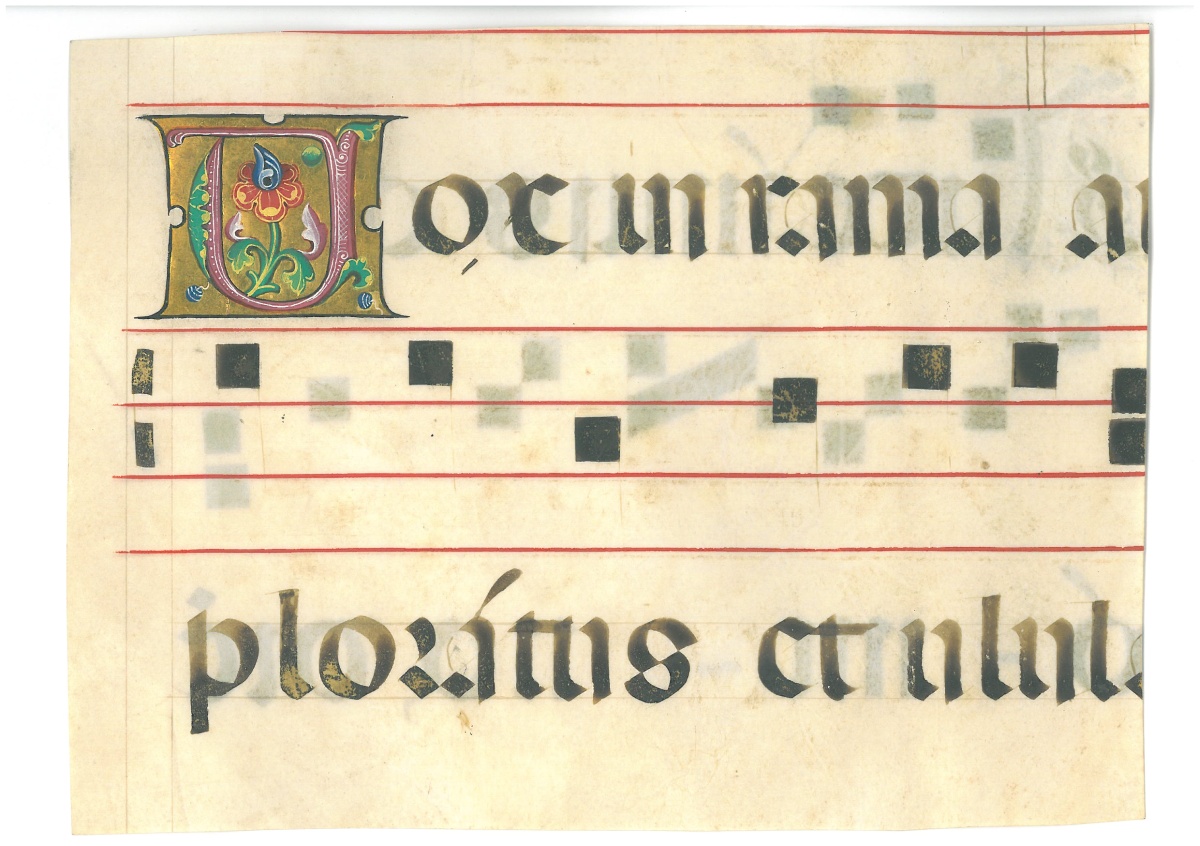 Vox in rama au
plorátus et ulul